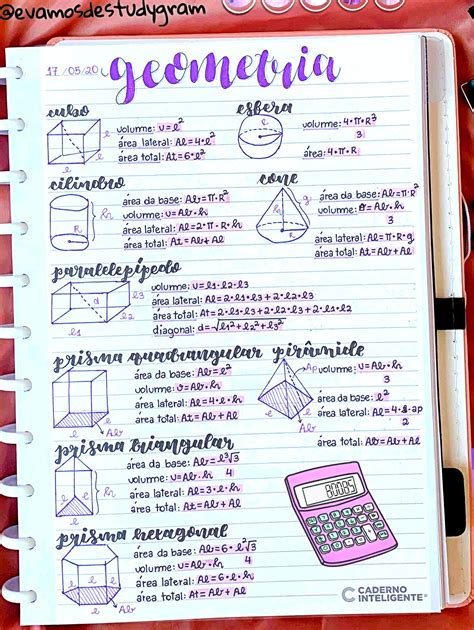 @evamosdestudygram
17/05/20
geometria
cubo
volume: v=l²
área lateral: Al=4·l²
área total: At=6·l²
l
esfera
volume: 4·π·R³
3
área: 4·π·R
cilindro
área da base: Ab=π·R²
volume: v=Ab·h
área lateral: Al=2·π·R·h
área total: At=Ab+Al
h
R
cone
área da base: Ab=π·R²
volume: v=Ab·h
3
área lateral: Al=π·R·g
área total: At=Ab+Al
h
g
R
paralelepípedo
volume: v=l1·l2·l3
área lateral: Al=2·l1·l3+2·l2·l3
área total: At=2·l1·l3+2·l2·l3+2·l1·l2
diagonal: d=√l1²+l2²+l3²
d
l3
l1
l2
prisma quadrangular
área da base: Ab=l²
volume: v=Ab·h
área lateral: Al=4·l·h
área total: At=Ab+Al
h
l
Ab
pirâmide
volume: v=Ab·h
3
área da base: l²
área lateral: Al=4·l·ap
2
área total: At=Ab+Al
Ap
l
Ab
prisma triangular
área da base: Ab=l²√3
4
volume: v=Ab·h
área lateral: Al=3·l·h
área total: At=Ab+Al
h
l
l
Ab
prisma hexagonal
área da base: Ab=6·l²√3
4
volume: v=Ab·h
área lateral: Al=6·l·h
área total: At=Ab+Al
h
l
l
Ab
80085
CADERNO
INTELIGENTE®